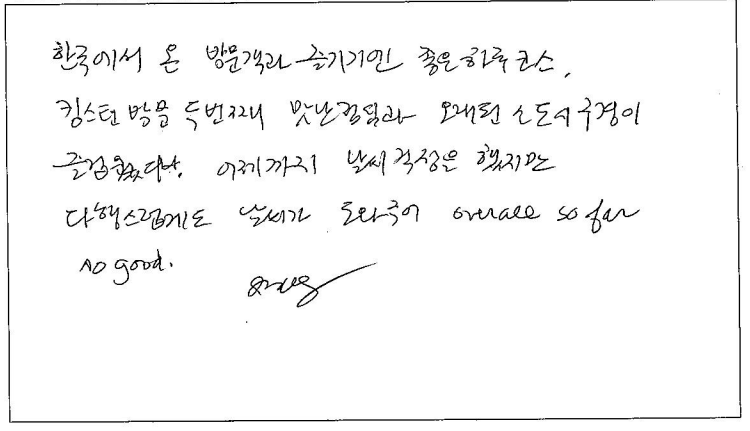 한국에서 온 방문객과 즐기기엔 좋은 하루 코스,
킹스턴 방문 두번째 맛난점심과 오래된 소도시 구경이
즐거웠다. 어제까지 날씨 걱정은 했지만
다행스럽게도 날씨가 도와주어 overall so far
so good.